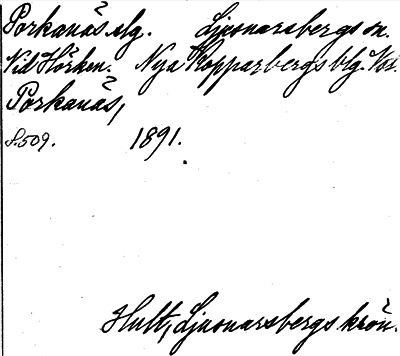 Porkanäs slg. Ljusnarsbergs sn.
Vid Hörken. Nya Kopparbergs blg. Vsl.
Porkanäs,
S. 509. 1891.
Hult, Ljusnarsbergs krön.